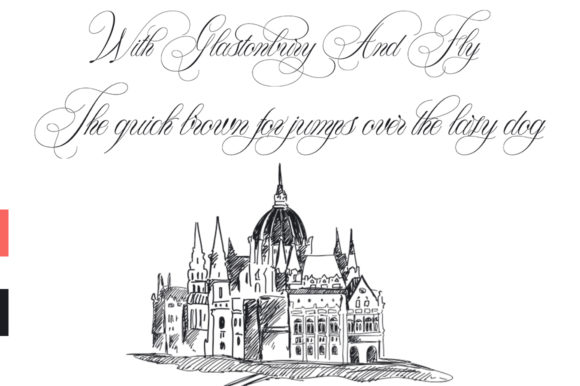 With Glastonbury And Fly
The quick brown fox jumps over the lazy dog